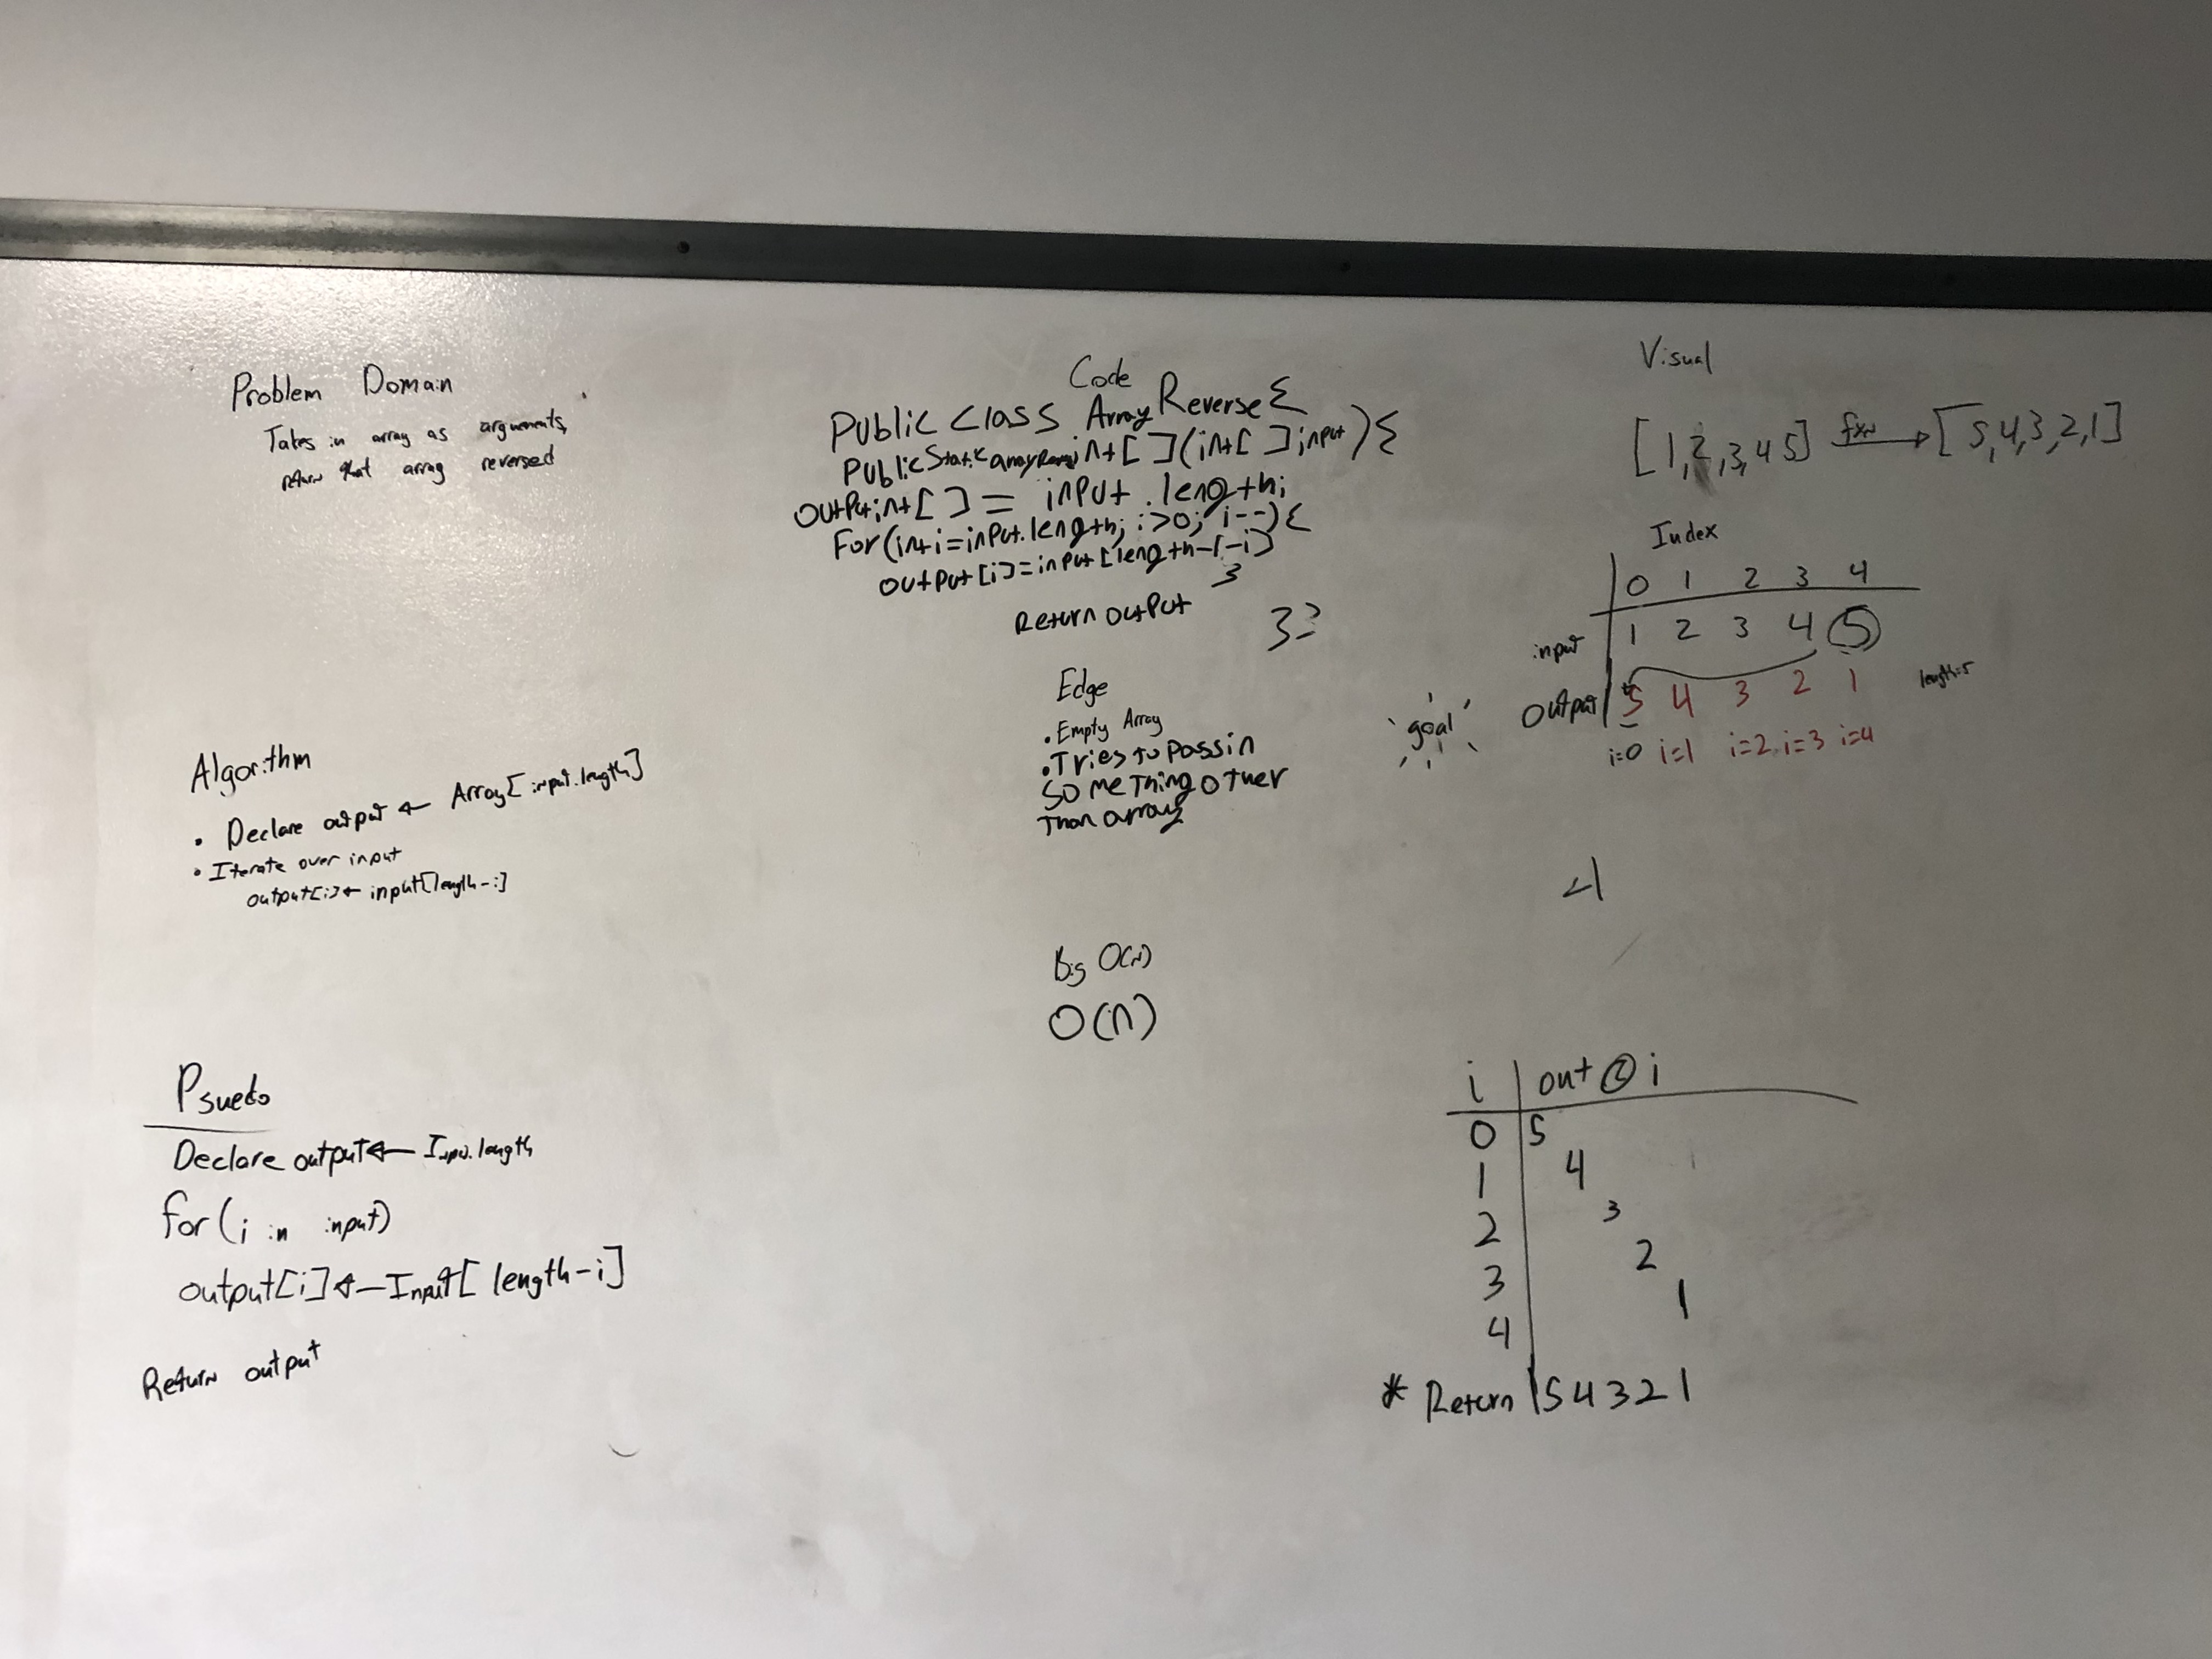 Problem Domain
Takes in array as arguments,
return that array reversed
Algorithm
• Declare output ← Array[input.length]
• Iterate over input
output[i] ← input[length-i]
Psuedo
Declare output ← Input.length
for(i in input)
output[i] ← Input[length-i]
Return output
Code
Public Class Array Reverse {
Public Static int[] (int[] input) {
output int[] = input.length;
For(int i=input.length; i>0; i--) {
output[i]=input[length-1-i]
}
Return output
}}
Edge
• Empty Array
• Tries to pass in
something other
Than array
Big O(N)
O(n)
Visual
[1,2,3,4 5] fxn → [5,4,3,2,1]
Index
0 1 2 3 4
input 1 2 3 4 5
goal output 5 4 3 2 1 length=5
i=0 i=1 i=2 i=3 i=4
i out @ i
0 5
1 4
2 3
3 2
4 1
* Return 5 4 3 2 1